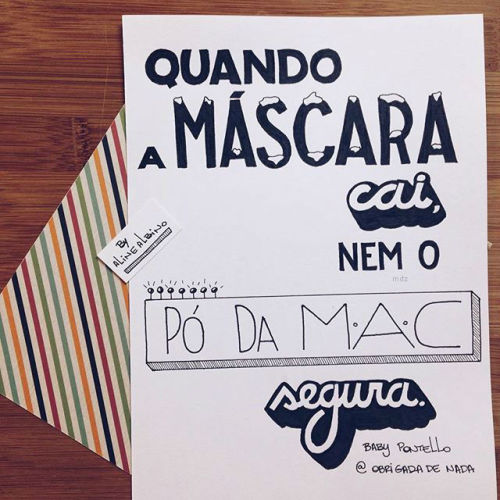 QUANDO
A MÁSCARA
cai,
NEM O
mdz
PÓ DA M·A·C
segura.
BABY PONTELLO
@ OBRIGADA DE NADA
BY
ALINEALBINO